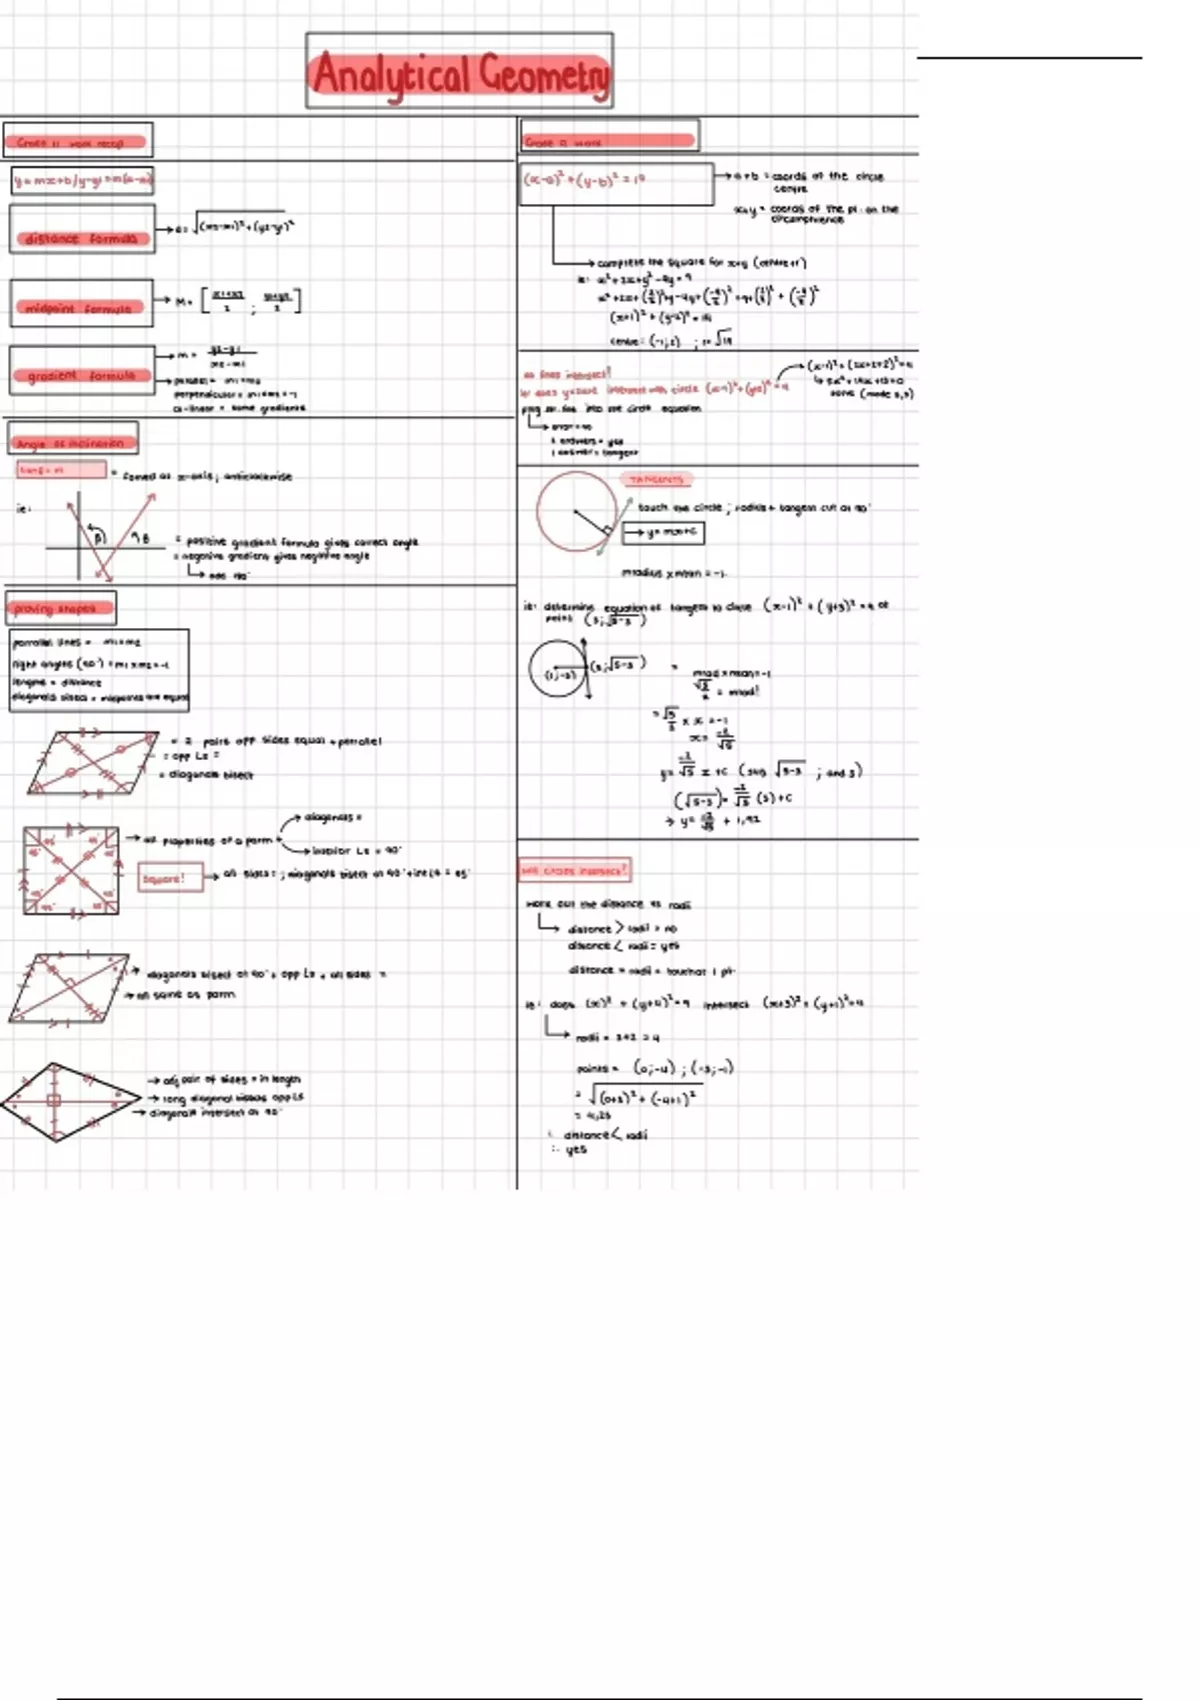 Analytical Geometry
Grade 11 work recap
y = mx+b / y-y1 = m(x-x1)
distance formula
midpoint formula
M =
gradient formula
→ m = y2-y1 / x2-x1
parallel = m1=m2
perpendicular = m1×m2=-1
co-linear = same gradients
Angle of inclination
= formed at x-axis; anticlockwise
ie:
= positive gradient formula gives correct angle
= negative gradient gives negative angle
proving shapes
parrallel lines = m1=m2
right angles (90°) = m1×m2=-1
lengths = distance
diagonals bisect = midpoints are equal
= 2 pairs opp sides equal + parrallel
= opp Ls =
= diagonals bisect
→ all properties of a parm + → diagonals =
→ interior Ls = 90°
Square! → all sides = ; diagonals bisect at 90° + int Ls = 45°
→ diagonals bisect at 90° + opp Ls + all sides =
→ all same as parm
→ adj pair of sides = in length
→ long diagonal bisects opp Ls
→ diagonals intersect at 90°
(x-a)² + (y-b)² =
→ a+b = coords of the circle
centre
x+y = coords of the pt. on the
circumference
→ complete the square for x+y (centre+r)
centre: (-1;2)
intersect with circle
plug st. line into the circle equation
2 answers = yes
1 answer = tangent
TANGENTS
touch the circle ; radius + tangent cut at 90°
→ y = mx+c
mradius × mtan = -1
ie: determine equation of tangent to circle (x-1)² + (y+3)² = 9 at
point (3;√5-3)
(1;-3) (3;√5-3)
mrad × mtan = -1
√5/2 = mrad!
= √5/2 × x = -1
x = -2/√5
y = -2/√5 x + c (sub √5-3 ; and 3)
(√5-3) = -2/√5 (3) + c
→ y = -2/√5 + 1,92
will circles intersect?
work out the distance vs radii
distance > radii = no
distance < radii = yes
distance = radii = touch at 1 pt.
ie: does (x)² + (y+4)² = 9 intersect (x+3)² + (y+1)² = 4
radii = 3+2 = 4
points = (0;-4) ; (-3;-1)
= √(0+3)² + (-4+1)²
∴ distance < radii
∴ yes